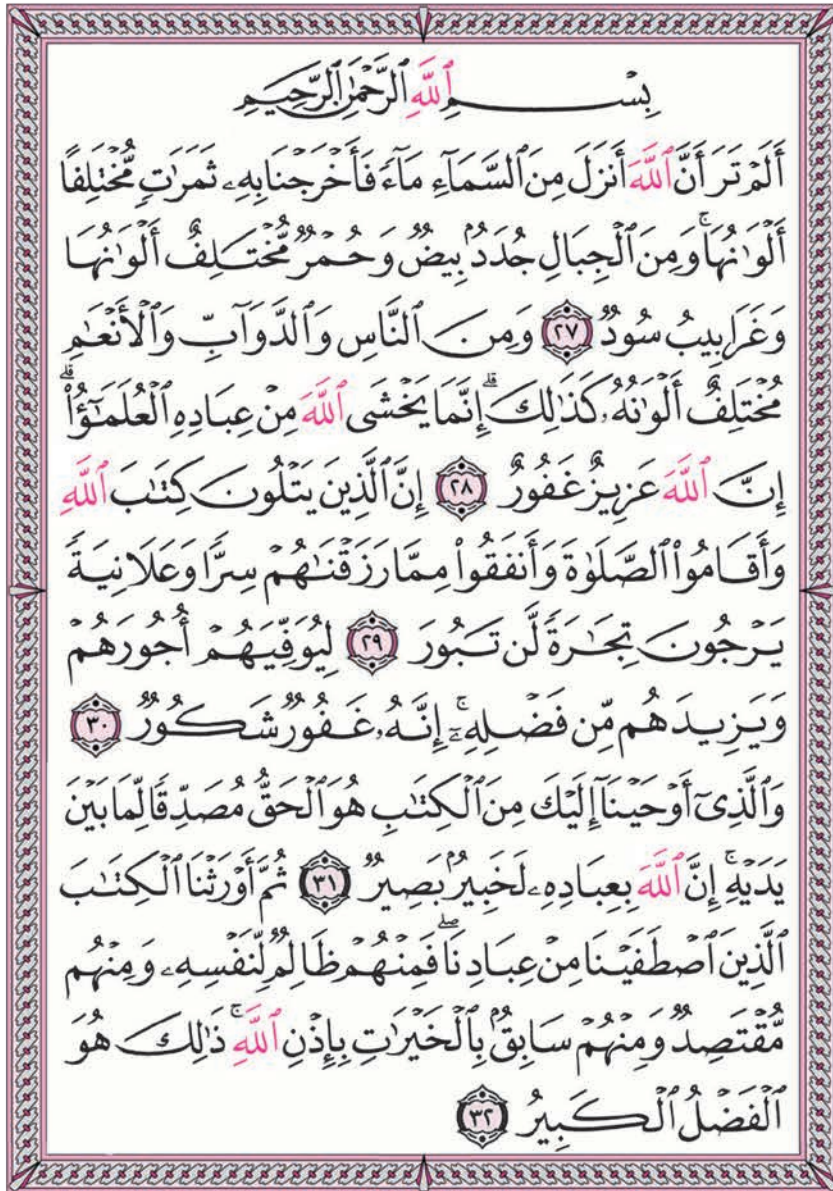 بِسْمِ ٱللَّهِ ٱلرَّحْمَٰنِ ٱلرَّحِيمِ
أَلَمْ تَرَ أَنَّ ٱللَّهَ أَنزَلَ مِنَ ٱلسَّمَآءِ مَآءً فَأَخْرَجْنَا بِهِۦ ثَمَرَٰتٍ مُّخْتَلِفًا
أَلْوَٰنُهَاۚ وَمِنَ ٱلْجِبَالِ جُدَدُۢ بِيضٌ وَحُمْرٌ مُّخْتَلِفٌ أَلْوَٰنُهَا
وَغَرَابِيبُ سُودٌ ٢٧ وَمِنَ ٱلنَّاسِ وَٱلدَّوَآبِّ وَٱلْأَنْعَٰمِ
مُخْتَلِفٌ أَلْوَٰنُهُۥ كَذَٰلِكَۗ إِنَّمَا يَخْشَى ٱللَّهَ مِنْ عِبَادِهِ ٱلْعُلَمَٰٓؤُا۟ۗ
إِنَّ ٱللَّهَ عَزِيزٌ غَفُورٌ ٢٨ إِنَّ ٱلَّذِينَ يَتْلُونَ كِتَٰبَ ٱللَّهِ
وَأَقَامُوا۟ ٱلصَّلَوٰةَ وَأَنفَقُوا۟ مِمَّا رَزَقْنَٰهُمْ سِرًّا وَعَلَانِيَةً
يَرْجُونَ تِجَٰرَةً لَّن تَبُورَ ٢٩ لِيُوَفِّيَهُمْ أُجُورَهُمْ
وَيَزِيدَهُم مِّن فَضْلِهِۦٓۚ إِنَّهُۥ غَفُورٌ شَكُورٌ ٣٠
وَٱلَّذِىٓ أَوْحَيْنَآ إِلَيْكَ مِنَ ٱلْكِتَٰبِ هُوَ ٱلْحَقُّ مُصَدِّقًا لِّمَا بَيْنَ
يَدَيْهِۗ إِنَّ ٱللَّهَ بِعِبَادِهِۦ لَخَبِيرُۢ بَصِيرٌ ٣١ ثُمَّ أَوْرَثْنَا ٱلْكِتَٰبَ
ٱلَّذِينَ ٱصْطَفَيْنَا مِنْ عِبَادِنَاۖ فَمِنْهُمْ ظَالِمٌ لِّنَفْسِهِۦ وَمِنْهُم
مُّقْتَصِدٌ وَمِنْهُمْ سَابِقُۢ بِٱلْخَيْرَٰتِ بِإِذْنِ ٱللَّهِۚ ذَٰلِكَ هُوَ
ٱلْفَضْلُ ٱلْكَبِيرُ ٣٢